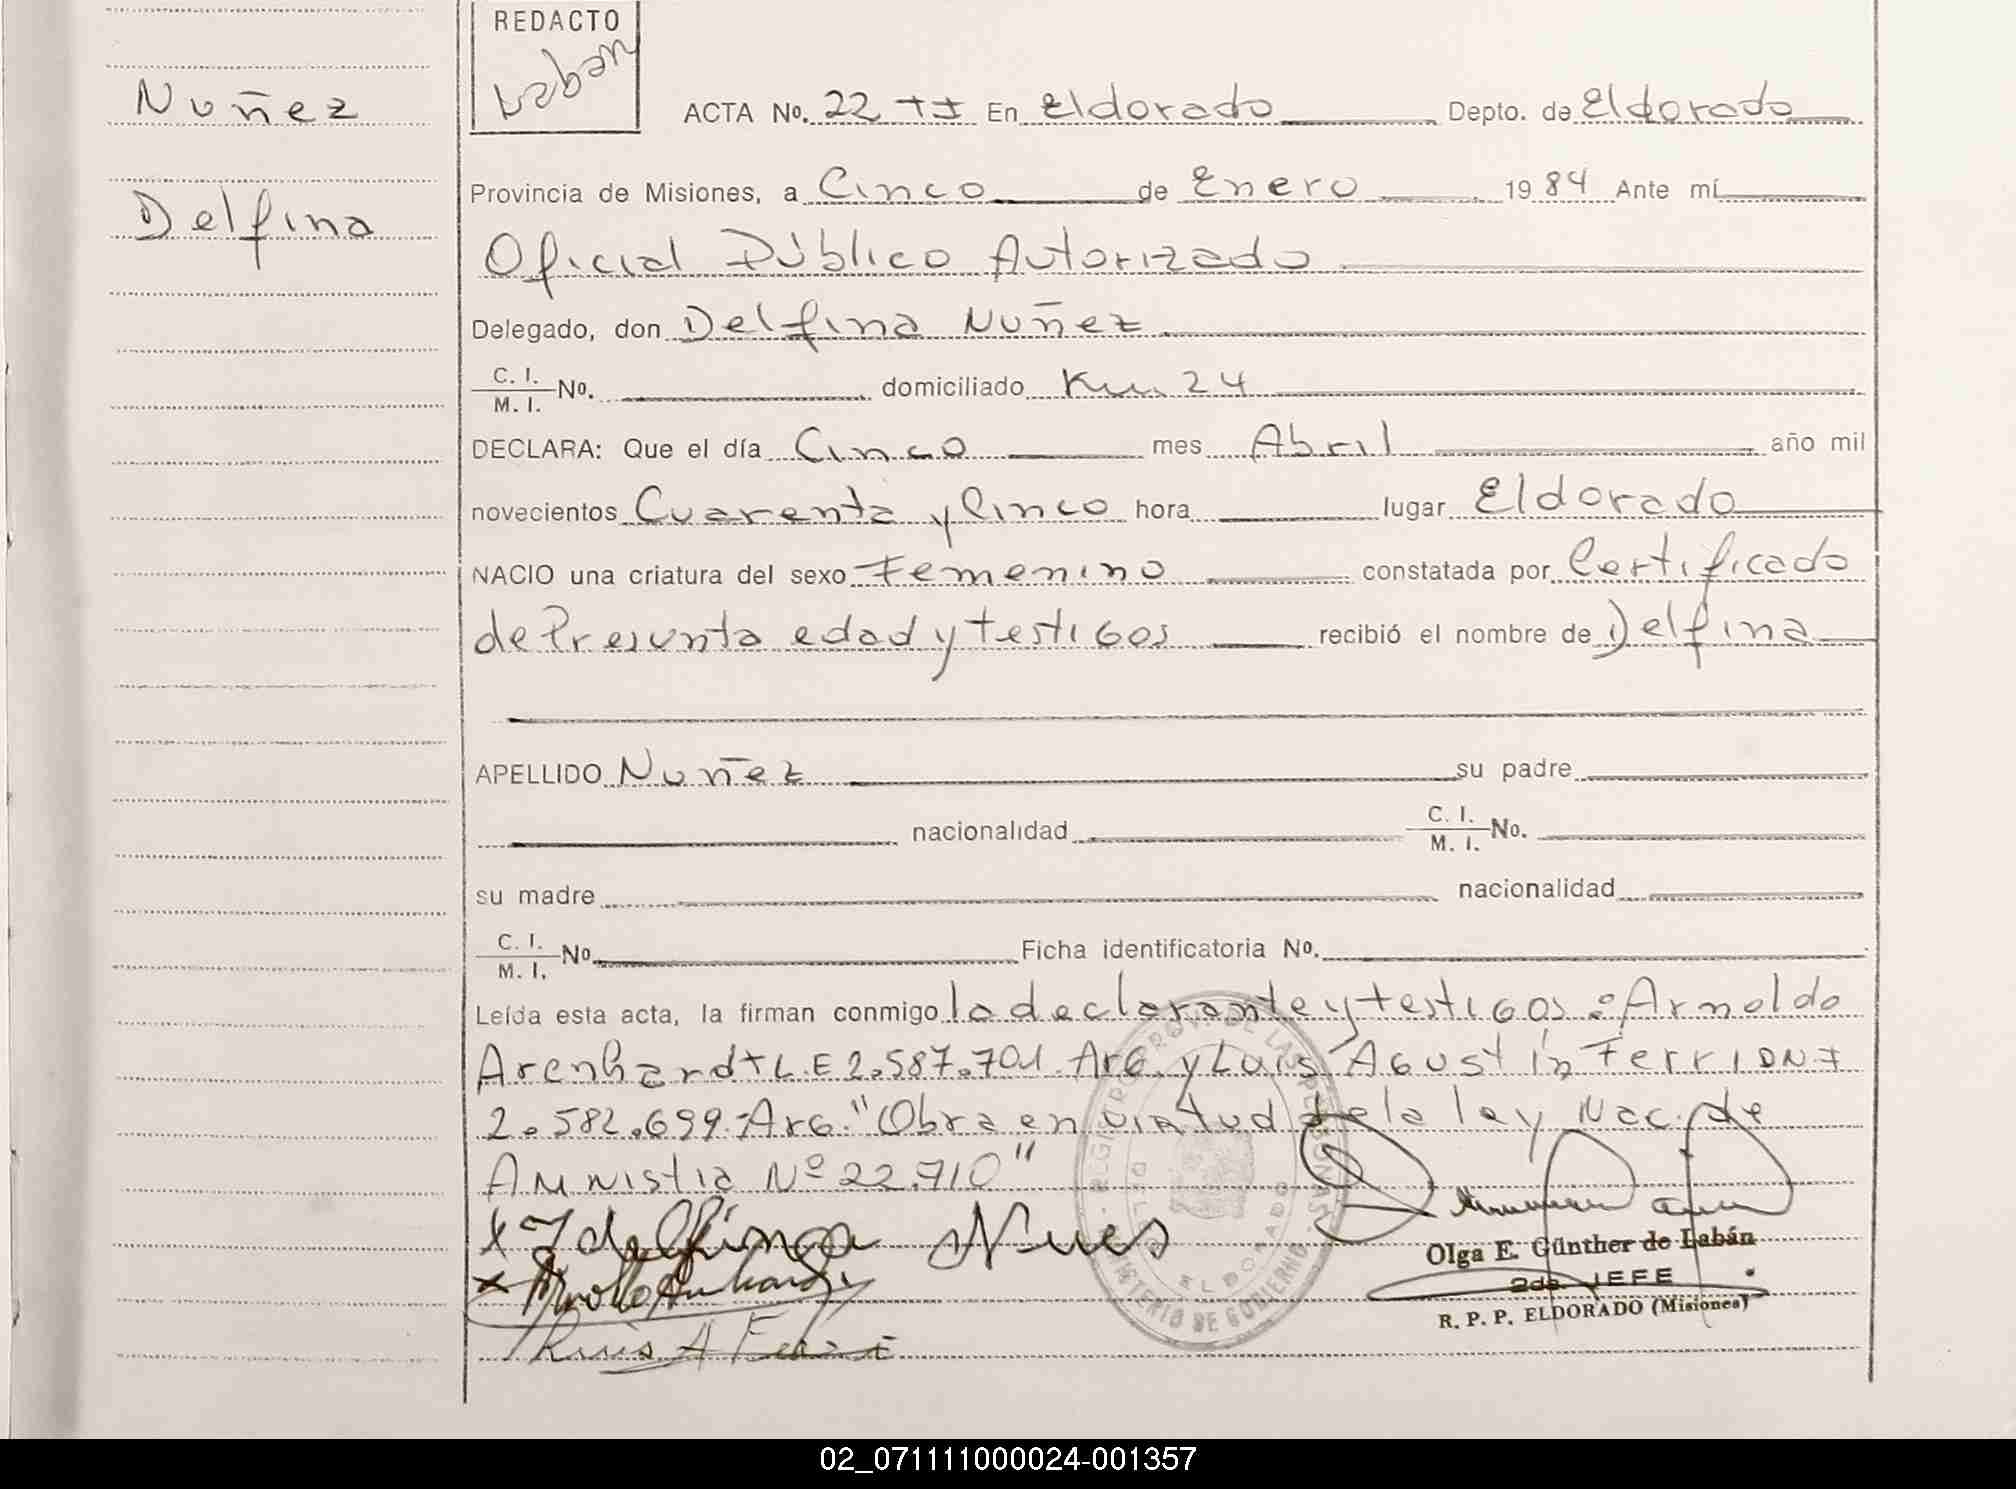 REDACTO
Laban
Nuñez
Delfina
ACTA No. 22 TI En Eldorado Depto. de Eldorado
Provincia de Misiones, a Cinco de Enero 1984 Ante mí
Oficial Público Autorizado
Delegado, don Delfina Nuñez
C. I.
M. I. No. domiciliado Km. 24
DECLARA: Que el día Cinco mes Abril año mil
novecientos Cuarenta y Cinco hora lugar Eldorado
NACIO una criatura del sexo Femenino constatada por Certificado
de Presunta edad y testigos recibió el nombre de Delfina
APELLIDO Nuñez su padre
nacionalidad C. I.
M. I. No.
su madre nacionalidad
C. I.
M. I. No. Ficha identificatoria No.
Leída esta acta, la firman conmigo la declarante y testigos: Arnoldo
Arenhardt L.E 2.587.701 Arg. y Luis Agustín Ferri DNI
2.582.699-Arg. "Obra en virtud de la ley Nac. de
Amnistia Nº 22.710"
delfina Nues
Luis A Ferri
REGISTRO PROVINCIAL DE LAS PERSONAS
ELDORADO
MINISTERIO DE GOBIERNO
Olga E. Günther de Labán
2da. JEFE
R. P. P. ELDORADO (Misiones)
02_071111000024-001357